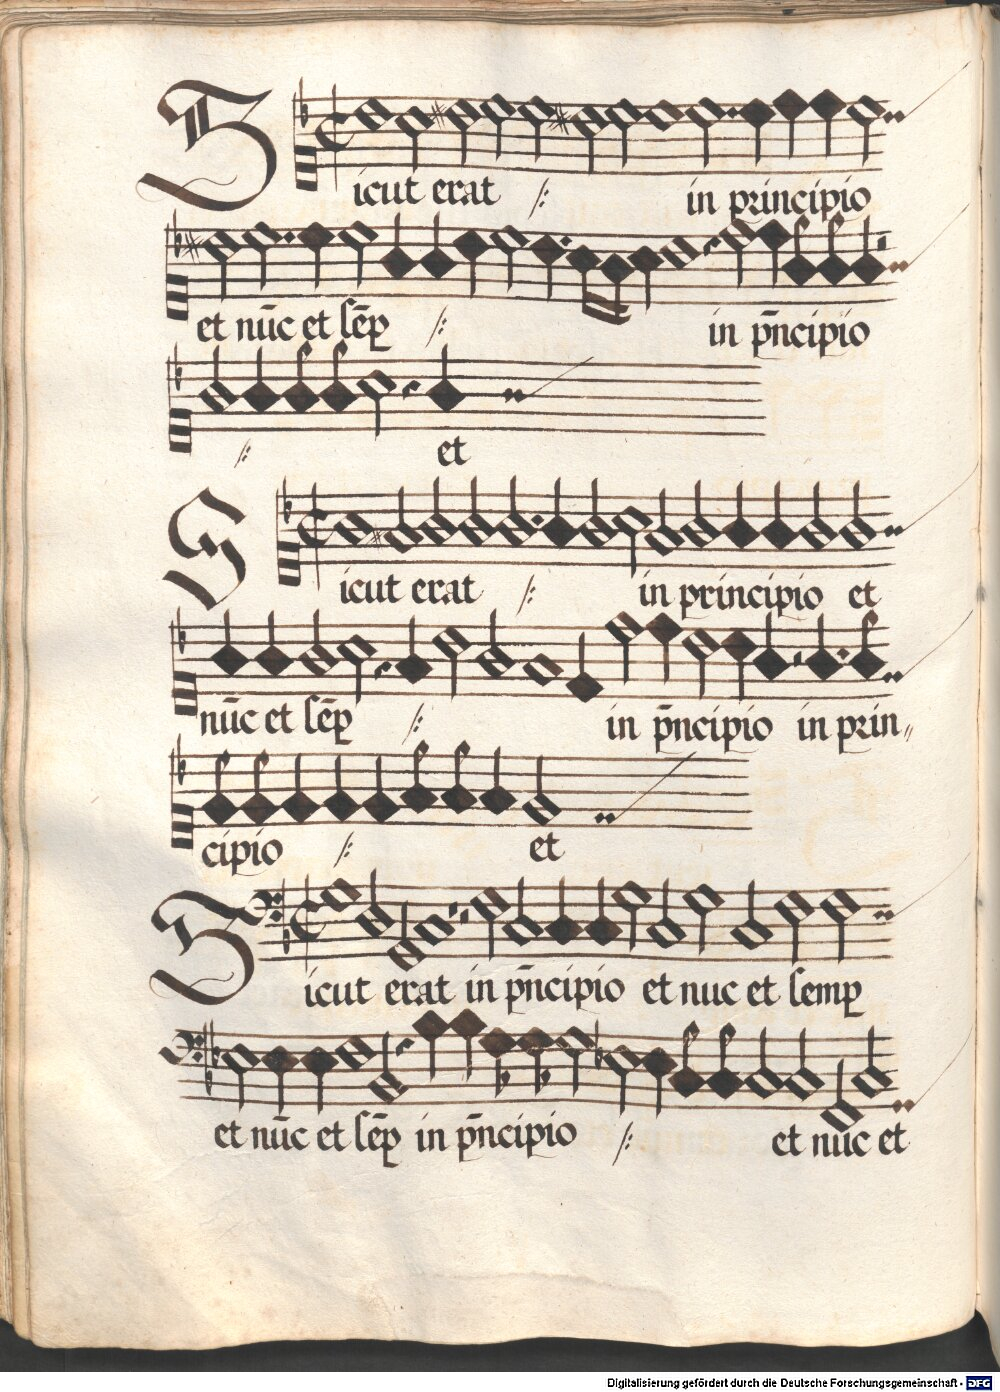 Sicut erat /: in principio
et nūc et sēp /: in pn̄cipio
/: et
Sicut erat /: in principio et
nūc et sēp /: in pn̄cipio in prin„
cipio /: et
Sicut erat in pn̄cipio et nuc et semp
et nūc et sēp in pn̄cipio /: et nūc et
Digitalisierung gefördert durch die Deutsche Forschungsgemeinschaft - DFG